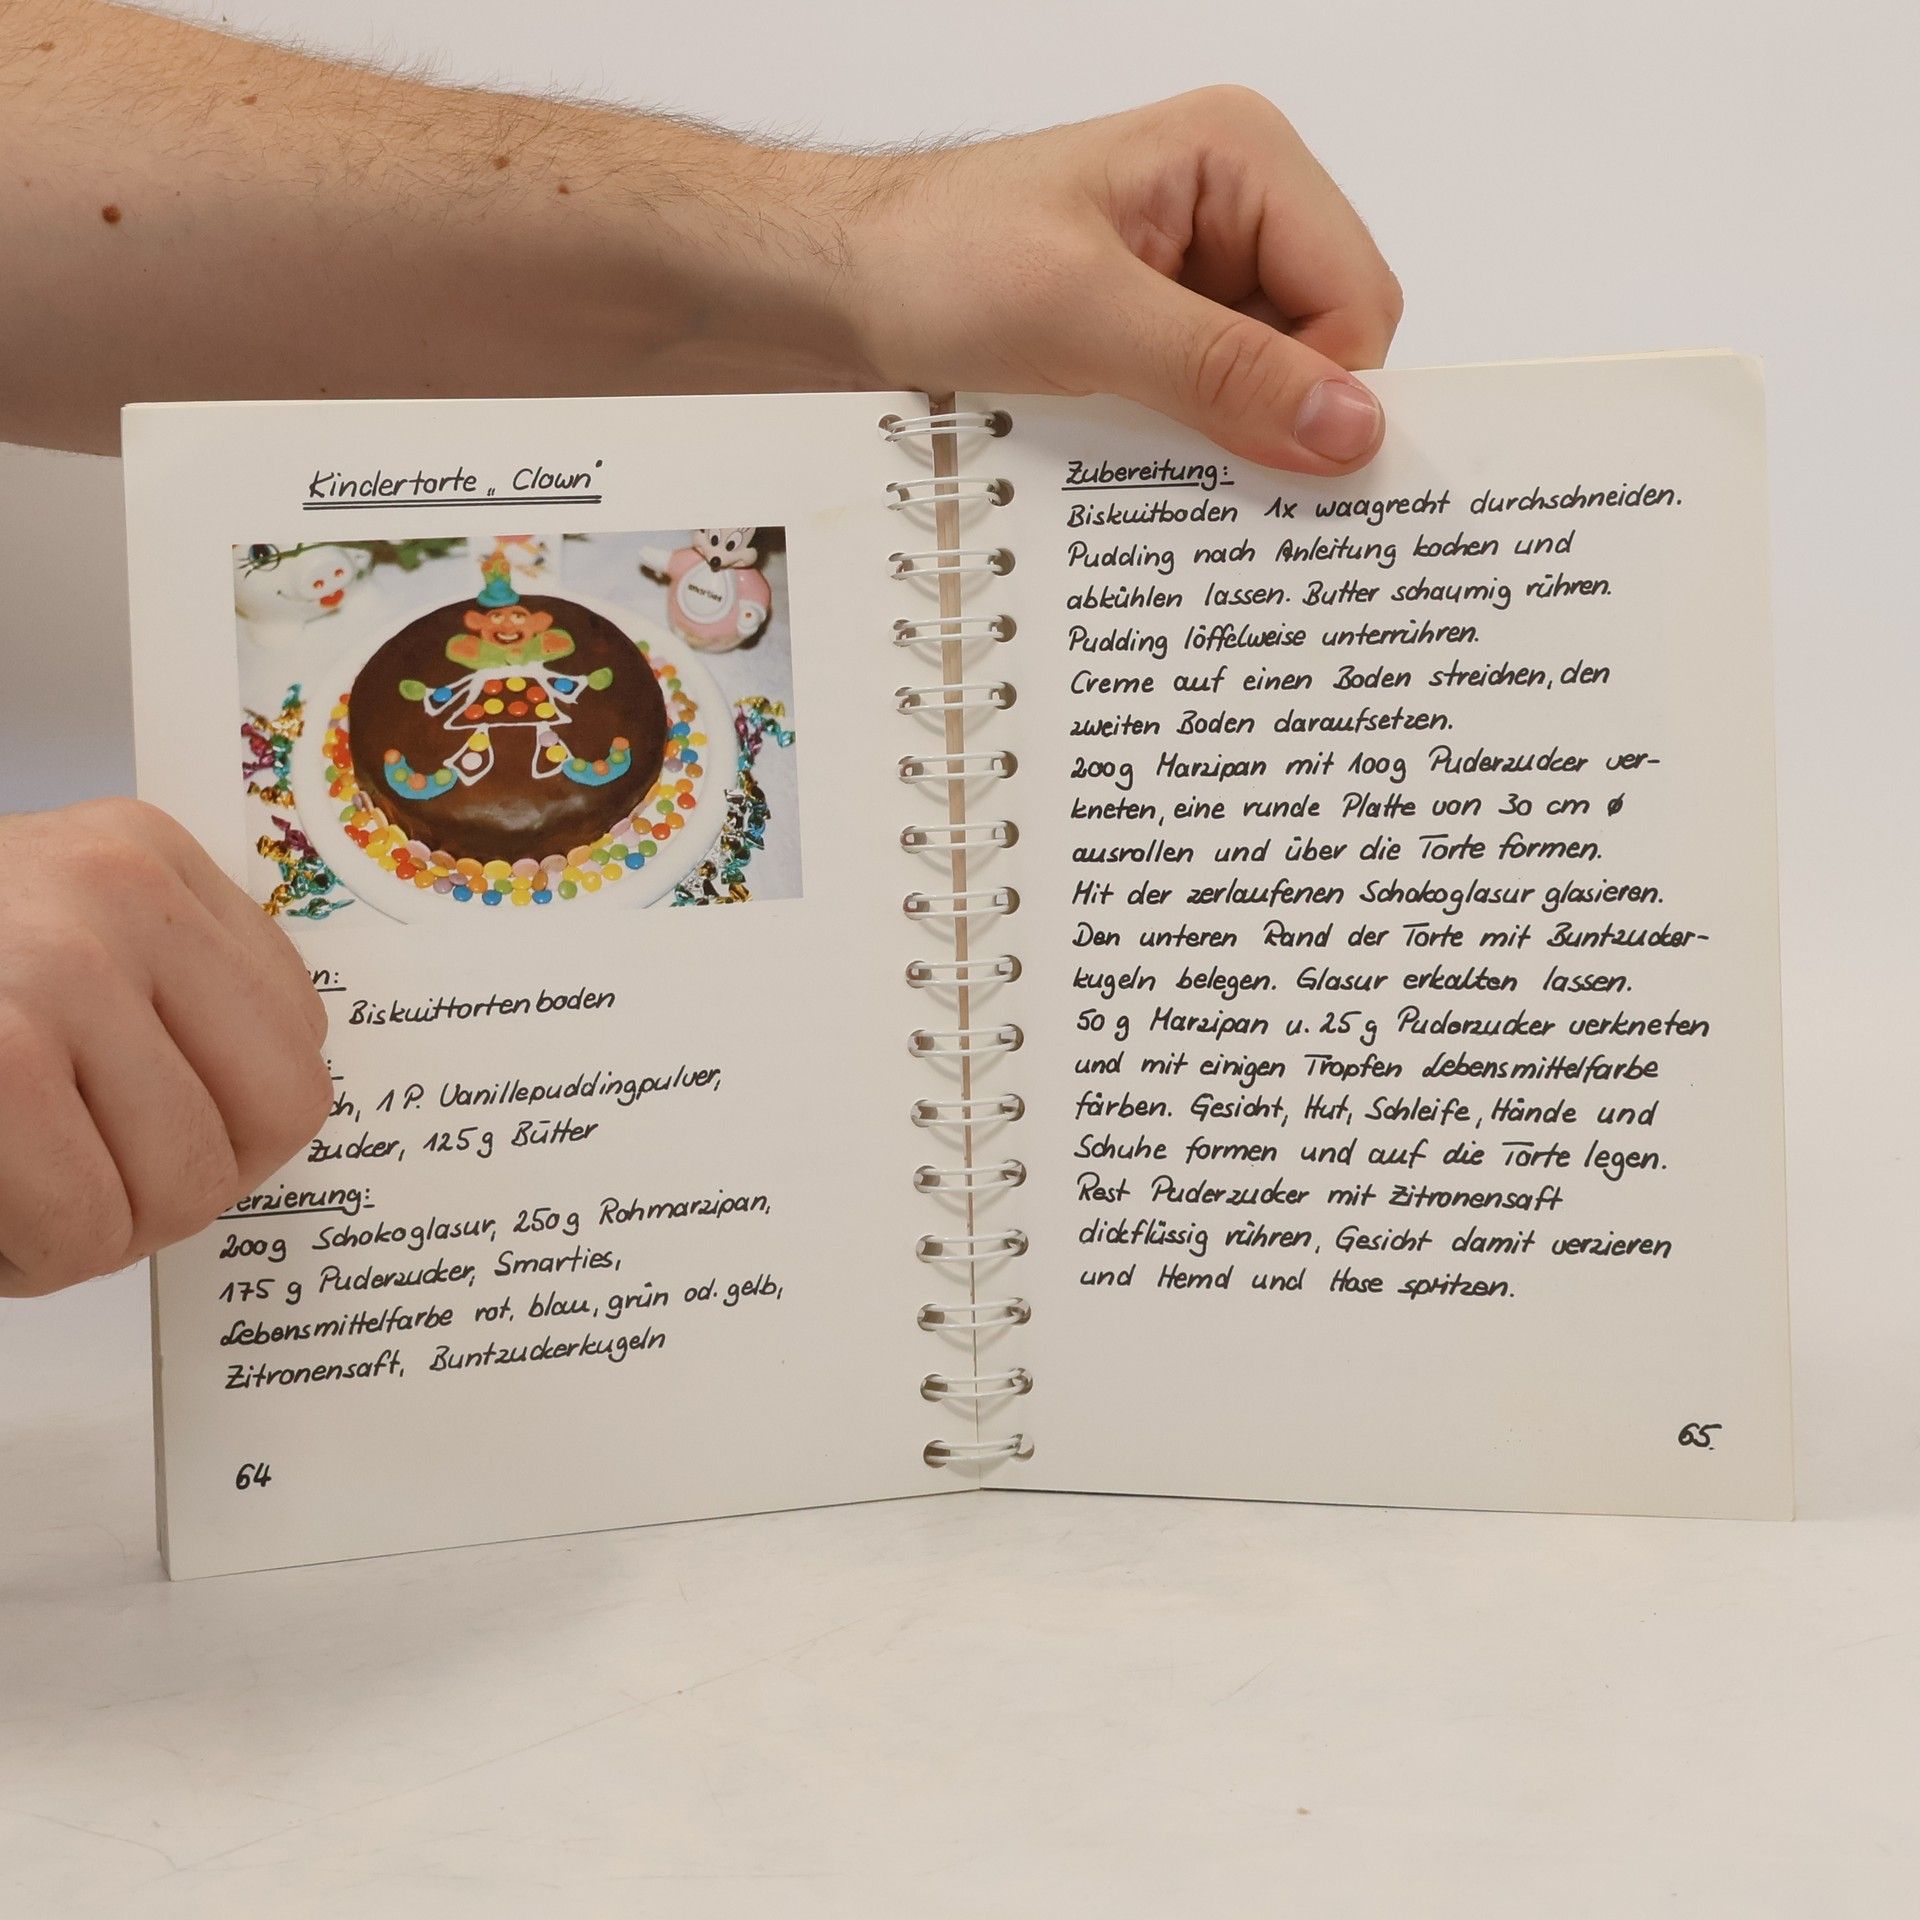 Kindertorte „Clown"
n:
Biskuittortenboden
ch, 1 P. Vanillepuddingpulver,
Zucker, 125 g Butter
erzierung:
200g Schokoglasur, 250g Rohmarzipan,
175 g Puderzucker, Smarties,
Lebensmittelfarbe rot, blau, grün od. gelb,
Zitronensaft, Buntzuckerkugeln
64
Zubereitung:
Biskuitboden 1x waagrecht durchschneiden.
Pudding nach Anleitung kochen und
abkühlen lassen. Butter schaumig rühren.
Pudding löffelweise unterrühren.
Creme auf einen Boden streichen, den
zweiten Boden daraufsetzen.
200g Marzipan mit 100g Puderzucker ver-
kneten, eine runde Platte von 30 cm ø
ausrollen und über die Torte formen.
Mit der zerlaufenen Schokoglasur glasieren.
Den unteren Rand der Torte mit Buntzucker-
kugeln belegen. Glasur erkalten lassen.
50 g Marzipan u. 25 g Puderzucker verkneten
und mit einigen Tropfen Lebensmittelfarbe
färben. Gesicht, Hut, Schleife, Hände und
Schuhe formen und auf die Torte legen.
Rest Puderzucker mit Zitronensaft
dickflüssig rühren, Gesicht damit verzieren
und Hemd und Hose spritzen.
65.